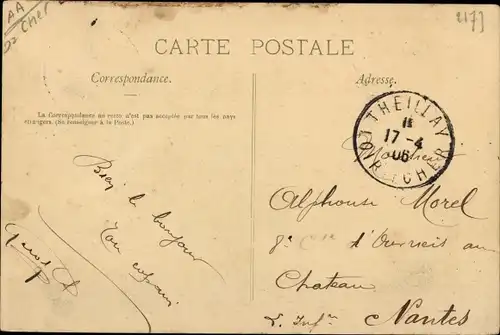 AA
Cher
2177
CARTE POSTALE
Correspondance.
Adresse.
La Correspondance au recto n'est pas acceptée par tous les pays
étrangers. (Se renseigner à la Poste.)
THEILLAY
17-4
06
LOIR-ET-CHER
Monsieur
Alphonse Morel
8e Cie d'Ouvriers au
Chateau
Nantes
L. Infre
Bien le bonjour
Ton copain